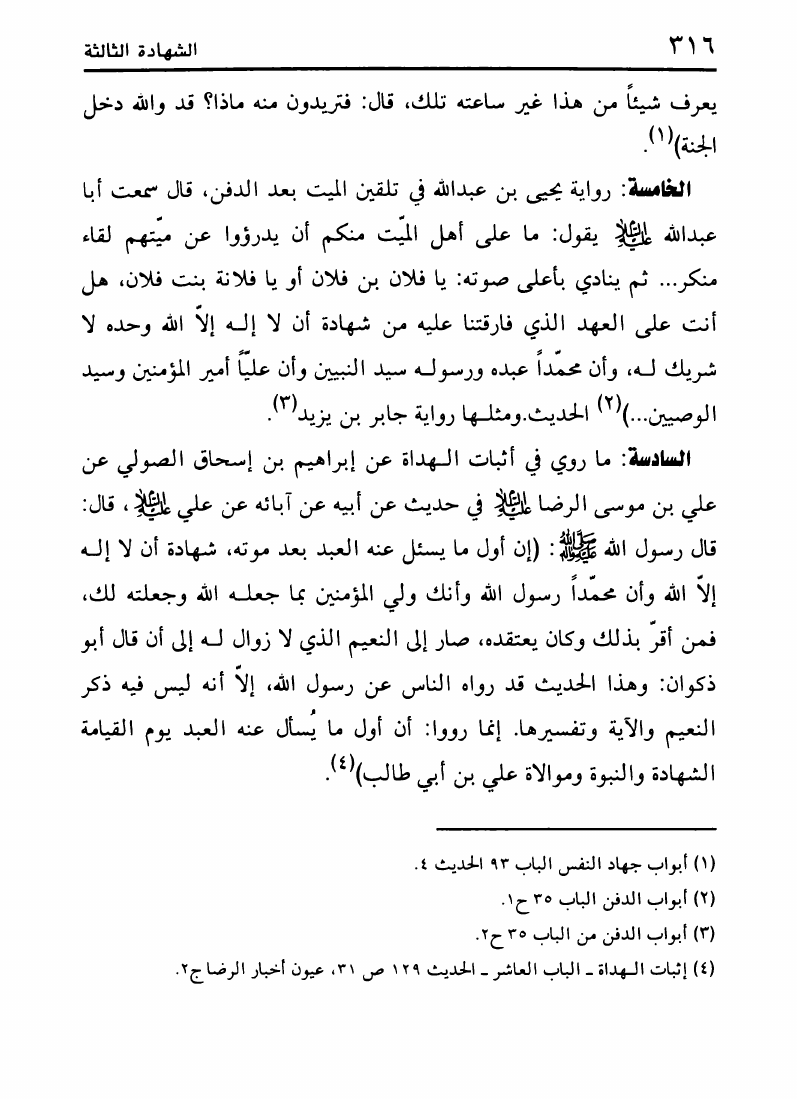 ٣١٦ الشهادة الثالثة
يعرف شيئاً من هذا غير ساعته تلك، قال: فتريدون منه ماذا؟ قد والله دخل
الجنة)(١).
الخامسة: رواية يحيى بن عبدالله في تلقين الميت بعد الدفن، قال سمعت أبا
عبدالله عليه السلام يقول: ما على أهل الميّت منكم أن يدرؤوا عن ميّتهم لقاء
منكر... ثم ينادي بأعلى صوته: يا فلان بن فلان أو يا فلانة بنت فلان، هل
أنت على العهد الذي فارقتنا عليه من شهادة أن لا إلـه إلاّ الله وحده لا
شريك لـه، وأن محمّداً عبده ورسولـه سيد النبيين وأن عليّاً أمير المؤمنين وسيد
الوصيين...)(٢) الحديث.ومثلـها رواية جابر بن يزيد(٣).
السادسة: ما روي في أثبات الـهداة عن إبراهيم بن إسحاق الصولي عن
علي بن موسى الرضا عليه السلام في حديث عن أبيه عن آبائه عن علي عليه السلام، قال:
قال رسول الله صلى الله عليه وآله: (إن أول ما يسئل عنه العبد بعد موته، شهادة أن لا إلـه
إلاّ الله وأن محمّداً رسول الله وأنك ولي المؤمنين بما جعلـه الله وجعلته لك،
فمن أقرّ بذلك وكان يعتقده، صار إلى النعيم الذي لا زوال لـه إلى أن قال أبو
ذكوان: وهذا الحديث قد رواه الناس عن رسول الله، إلاّ أنه ليس فيه ذكر
النعيم والآية وتفسيرها. إنما رووا: أن أول ما يُسأل عنه العبد يوم القيامة
الشهادة والنبوة وموالاة علي بن أبي طالب)(٤).
(١) أبواب جهاد النفس الباب ٩٣ الحديث ٤.
(٢) أبواب الدفن الباب ٣٥ ح١.
(٣) أبواب الدفن من الباب ٣٥ ح٢.
(٤) إثبات الـهداة ـ الباب العاشر ـ الحديث ١٢٩ ص ٣١، عيون أخبار الرضا ج٢.